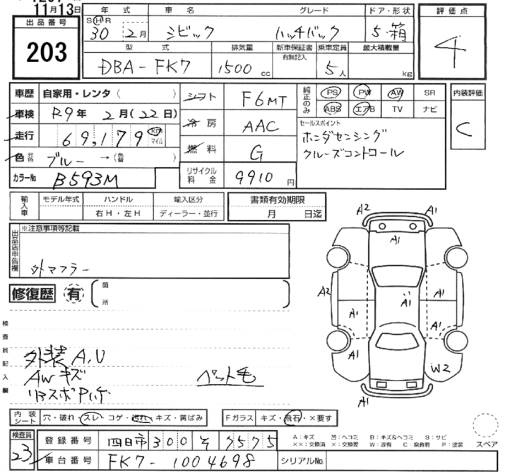 11月13日
出品番号 203
年式 S H R 30 2月
車名 シビック
グレード ハッチバック
ドア・形状 5・箱
評価点 4
型式 DBA-FK7
排気量 1500 cc
新車保証書 有無記入
乗車定員 5人
最大積載量 kg
車歴 自家用・レンタ ( )
車検 R9年 2月 (22日)
走行 69,179 マイル
色 ブルー →( )
カラーNo B593M
シフト F6MT
冷房 AAC
燃料 G
リサイクル料金 9910円
純正のみ PS PW AW SR
ABS エアB TV ナビ
内装評価 C
セールスポイント
ホンダセンシング
クルーズコントロール
輸入車 モデル年式 ハンドル 輸入区分
年 右H・左H ディーラー・並行
書類有効期限
月 日迄
出品店申告欄 ※注意事項等記載
外マフラー
修復歴 有 箇所
検査員記入欄
外装A.U
AWキズ
ペット毛
A2 A1
A1
A2 A1 A1 A1
A1 W2
A1
内装シート 穴・破れ・スレ・コゲ・汚れ・キズ・黄ばみ
Fガラス キズ・飛石・×要す
スペア
検査員 23
登録番号 四日市300 そ 7575
車台番号 FK7-1004698
シリアルNo.
A:キズ U:ヘコミ B:キズ&ヘコミ S:サビ
××:交換済 W:波有 C:腐食 P:塗装